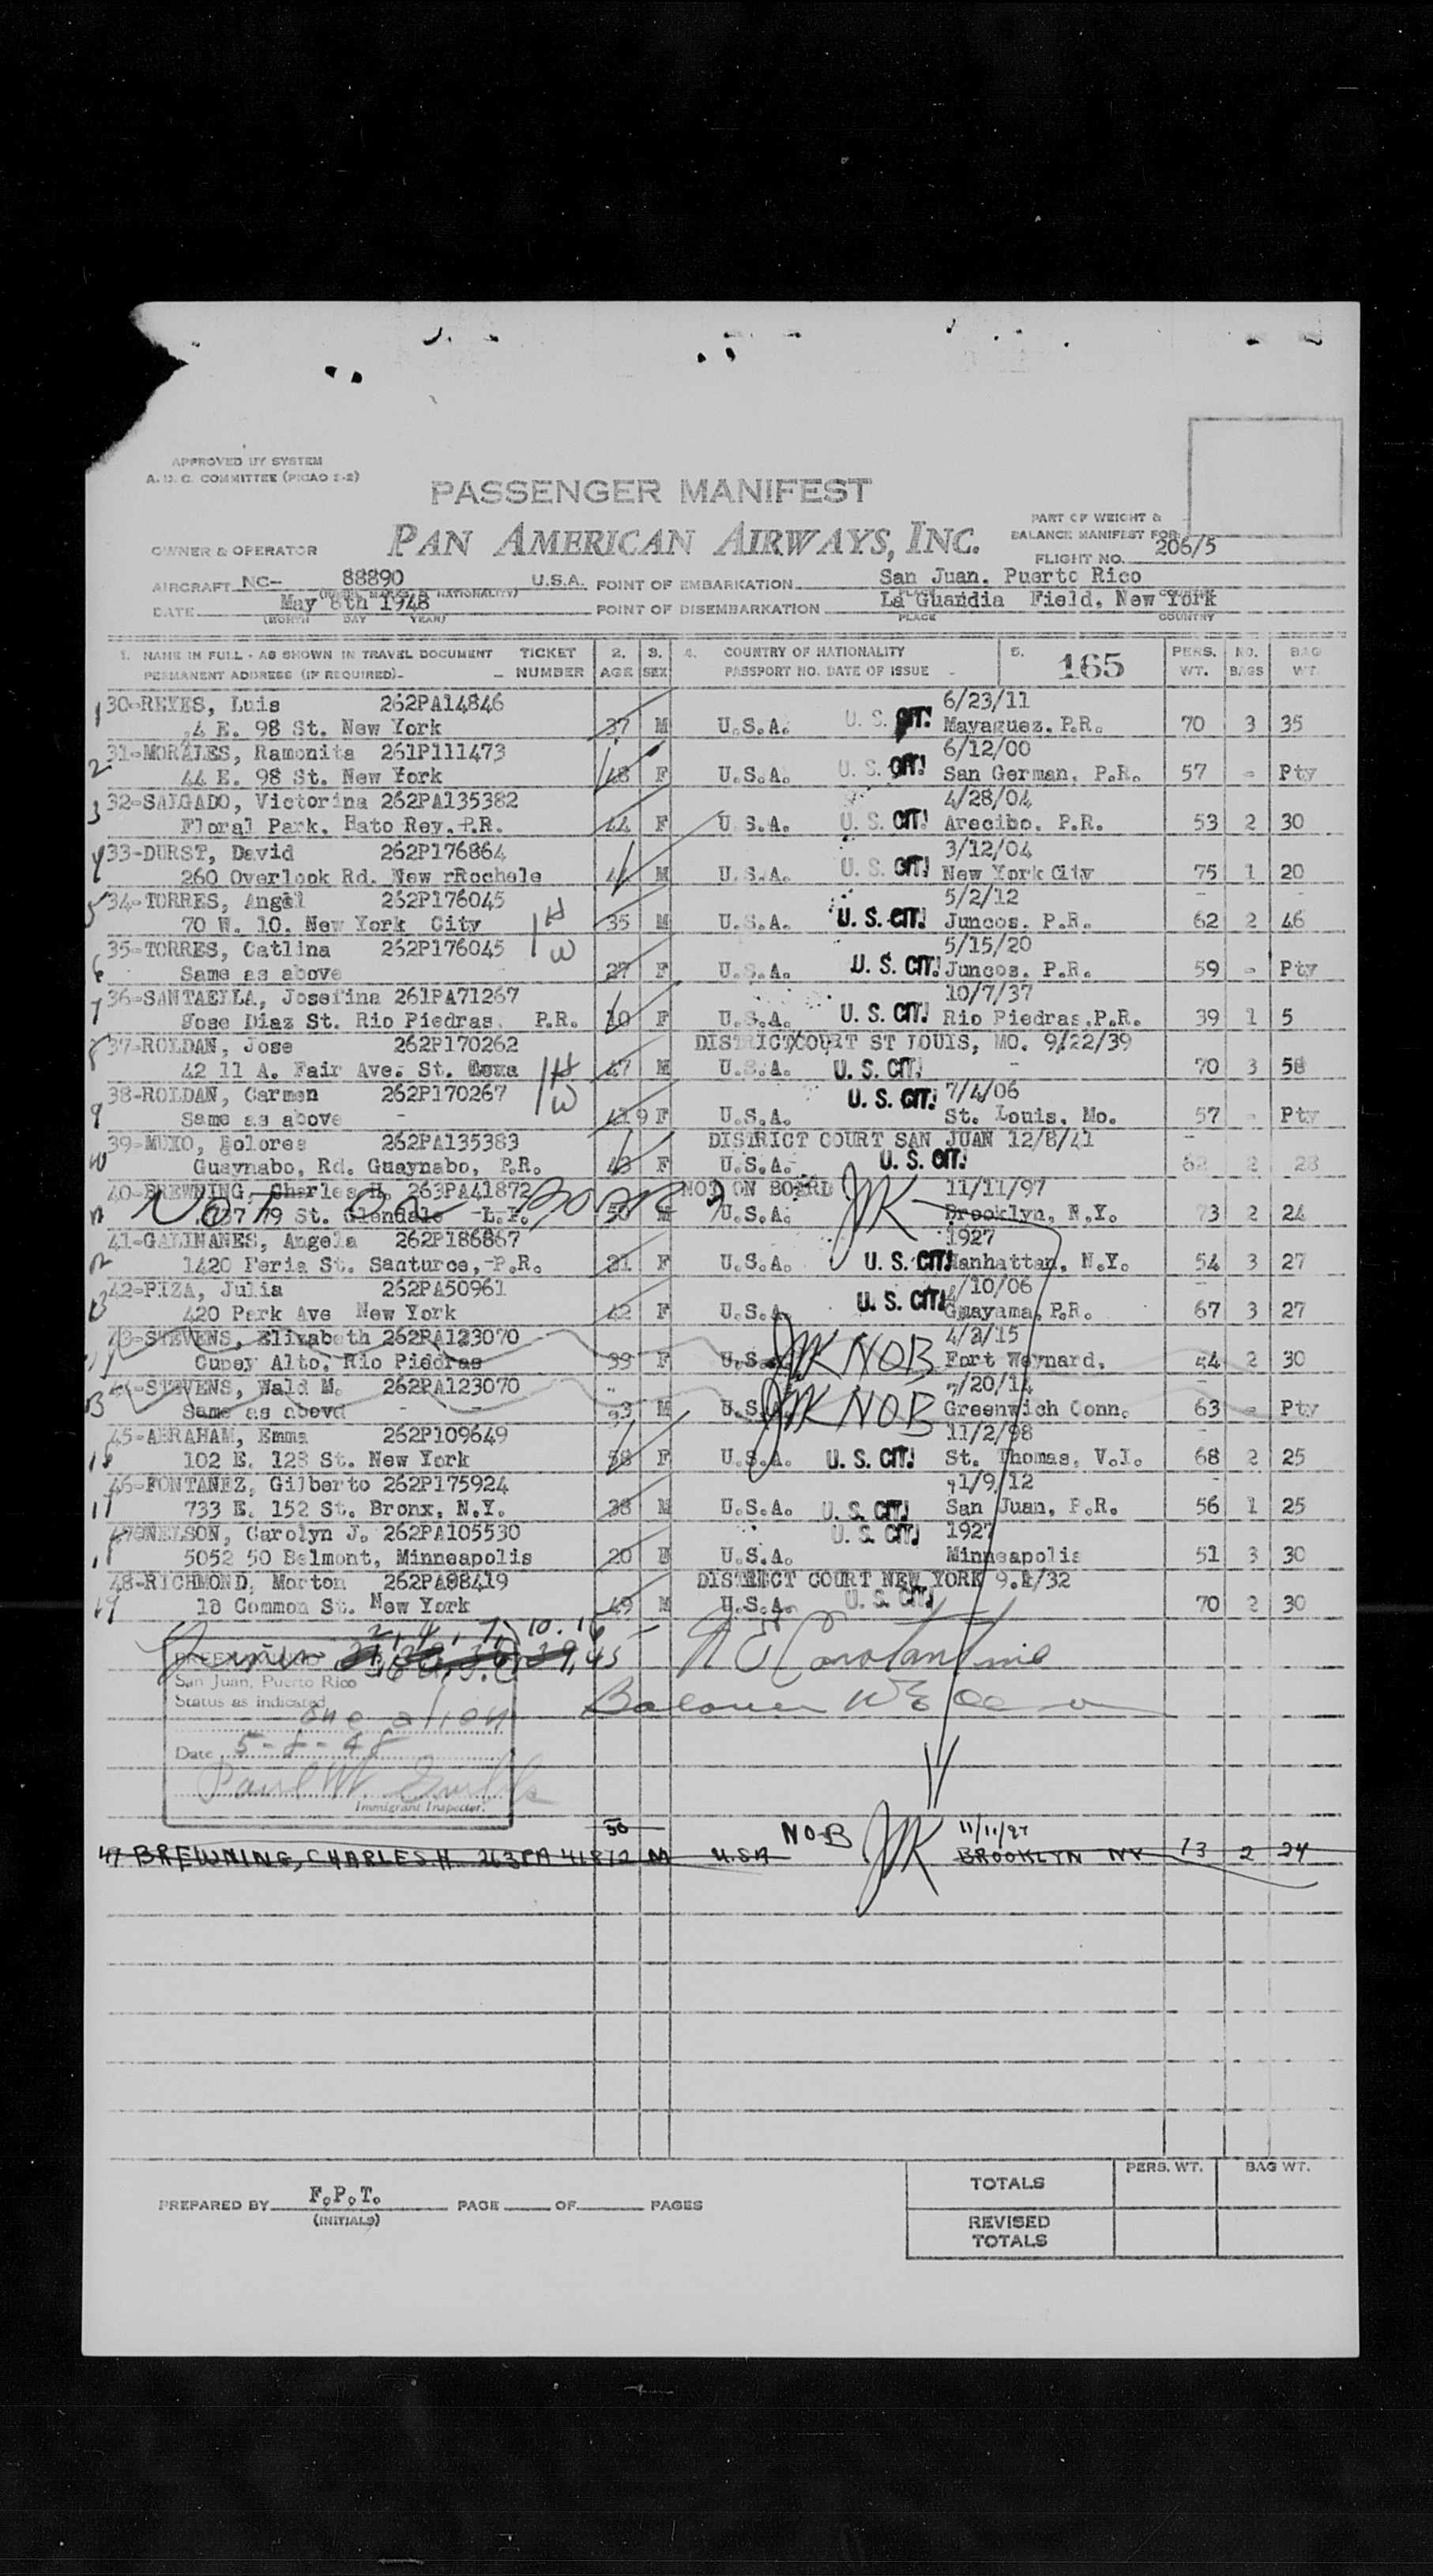 APPROVED BY SYSTEM
A. D. C. COMMITTEE (PICAO 2-2)
PASSENGER MANIFEST
PAN AMERICAN AIRWAYS, INC.
PART OF WEIGHT &
BALANCE MANIFEST FOR
OWNER & OPERATOR
FLIGHT NO. 206/5
AIRCRAFT NC- 88890 U.S.A. POINT OF EMBARKATION San Juan. Puerto Rico
DATE May 8th 1948 POINT OF DISEMBARKATION La Guardia Field, New York
(MONTH DAY YEAR) PLACE COUNTRY
1. NAME IN FULL - AS SHOWN IN TRAVEL DOCUMENT TICKET 2. 3. 4. COUNTRY OF NATIONALITY 5. 165 PERS. NO. BAG
PERMANENT ADDRESS (IF REQUIRED)- - NUMBER AGE SEX PASSPORT NO. DATE OF ISSUE WT. BAGS WT.
1 30-REYES, Luis 262PA14846 6/23/11
4 E. 98 St. New York 37 M U.S.A. U. S. CIT! Mayaguez. P.R. 70 3 35
2 31-MORALES, Ramonita 261P111473 6/12/00
44 E. 98 St. New York 48 F U.S.A. U. S. CIT! San German, P.R. 57 - Pty
3 32-SALGADO, Victorina 262PA135382 4/28/04
Floral Park. Hato Rey. P.R. 44 F U.S.A. U. S. CIT! Arecibo. P.R. 53 2 30
4 33-DURST, David 262P176864 3/12/04
260 Overlook Rd. New rRochele 44 M U.S.A. U. S. CIT! New York City 75 1 20
5 34-TORRES, Angel 262P176045 5/2/12
70 W. 10. New York City H 35 M U.S.A. U. S. CIT! Juncos. P.R. 62 2 46
6 35-TORRES, Catlina 262P176045 W 5/15/20
Same as above 27 F U.S.A. U. S. CIT! Juncos. P.R. 59 - Pty
7 36-SANTAELLA, Josefina 261PA71267 10/7/37
Jose Diaz St. Rio Piedras. P.R. 10 F U.S.A. U. S. CIT! Rio Piedras.P.R. 39 1 5
8 37-ROLDAN, Jose 262P170262 DISTRICT COURT ST LOUIS, MO. 9/22/39
42 11 A. Fair Ave. St. H 47 M U.S.A. U. S. CIT! - 70 3 58
9 38-ROLDAN, Carmen 262P170267 W U. S. CIT! 7/4/06
Same as above - 41 9 F U.S.A. St. Louis. Mo. 57 - Pty
10 39-MUXO, Dolores 262PA135383 DISTRICT COURT SAN JUAN 12/8/41
Guaynabo, Rd. Guaynabo, P.R. 43 F U.S.A. U. S. CIT! 62 2 28
11 40-BREWNING, Charles H. 263PA41872 NOT ON BOARD JMK 11/11/97
NOT ON BOARD
79 St. Glendale L.I. 50 M U.S.A. Brooklyn, N.Y. 73 2 24
12 41-GALINANES, Angela 262P186867 1927
1420 Feria St. Santurce, P.R. 21 F U.S.A. U. S. CIT! Manhattan, N.Y. 54 3 27
13 42-PIZA, Julia 262PA50961 /10/06
420 Park Ave New York 42 F U.S.A. U. S. CIT! Guayama, P.R. 67 3 27
43-STEVENS, Elizabeth 262PA123070 4/2/15
Cupey Alto, Rio Piedras 33 F U.S.A. JMK NOB Fort Weynard. 44 2 30
44-STEVENS, Wald M. 262PA123070 /20/14
Same as abovd - - 33 M U.S.A. JMK NOB Greenwich Conn. 63 - Pty
16 45-ABRAHAM, Emma 262P109649 11/2/98
102 E. 128 St. New York 58 F U.S.A. U. S. CIT! St. Thomas, V.I. 68 2 25
17 46-FONTANEZ, Gilberto 262P175924 1/9/12
733 E. 152 St. Bronx, N.Y. 38 M U.S.A. U. S. CIT! San Juan, P.R. 56 1 25
18 47-NELSON, Carolyn J. 262PA105530 U. S. CIT! 1927
5052 50 Belmont, Minneapolis 20 F U.S.A. Minneapolis 51 3 30
19 48-RICHMOND, Morton 262PA98419 DISTRICT COURT NEW YORK 9.4/32
18 Common St. New York 49 M U.S.A. U. S. CIT! 70 2 30
2, 4, 7, 10. 16
San Juan, Puerto Rico
Status as indicated
one alien
Date 5-8-48
Paul W.
Immigrant Inspector.
50 NOB JMK 11/11/97
47 BREWNING, CHARLES H 263PA 41872 M U.S.A BROOKLYN NY 73 2 24
PREPARED BY F.P.T. PAGE OF PAGES
(INITIALS)
PERS. WT. BAG WT.
TOTALS
REVISED
TOTALS